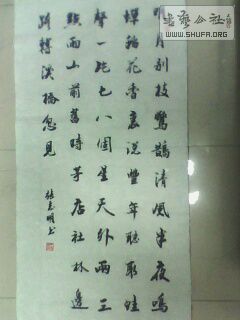 明月别枝驚鵲清風半夜鳴
蟬稻花香裏説豐年聽取蛙
聲一片七八個星天外兩三
點雨山前舊時茅店社林邊
路轉溪橋忽見
張志明书
書藝公社
WWW.SHUFA.ORG